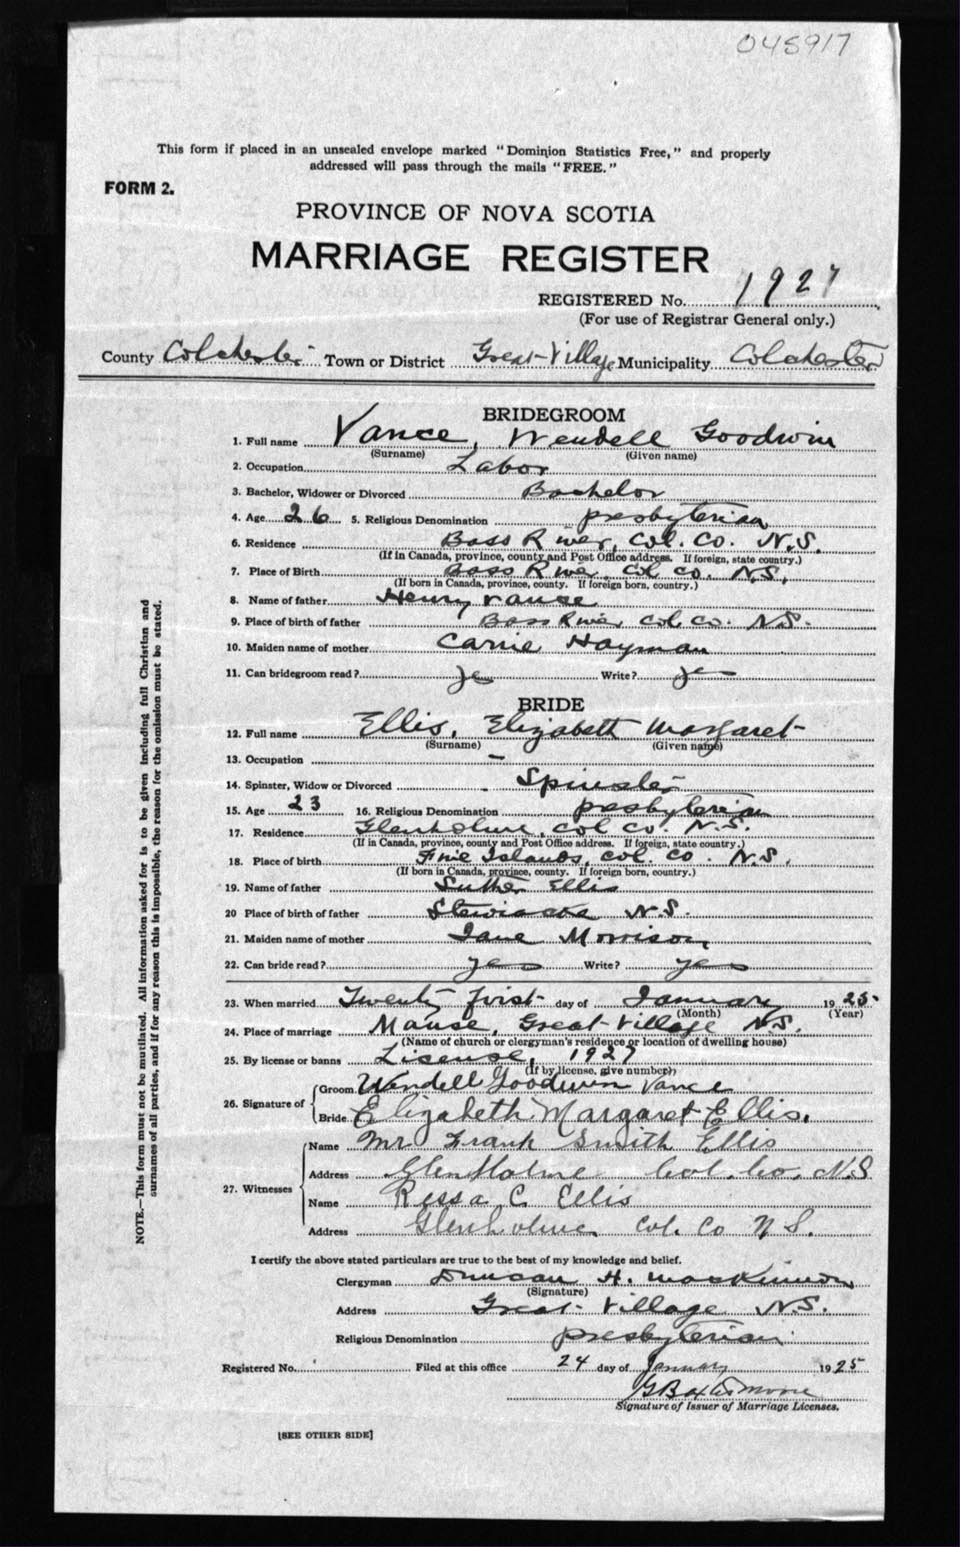 045917
This form if placed in an unsealed envelope marked "Dominion Statistics Free," and properly
addressed will pass through the mails "FREE."
FORM 2.
PROVINCE OF NOVA SCOTIA
MARRIAGE REGISTER
REGISTERED No. 1927
(For use of Registrar General only.)
County Colchester Town or District Great Village Municipality Colchester
BRIDEGROOM
1. Full name Vance, Wendell Goodwin
(Surname) (Given name)
2. Occupation Labor
3. Bachelor, Widower or Divorced Bachelor
4. Age 26 5. Religious Denomination presbyterian
6. Residence Bass River, Col. Co. N.S.
(If in Canada, province, county and Post Office address. If foreign, state country.)
7. Place of Birth Bass River, Col. Co. N.S.
(If born in Canada, province, county. If foreign born, country.)
8. Name of father Henry Vance
9. Place of birth of father Bass River Col. Co. N.S.
10. Maiden name of mother Carrie Hayman
11. Can bridegroom read? yes Write? yes
BRIDE
12. Full name Ellis, Elizabeth Margaret
(Surname) (Given name)
13. Occupation –
14. Spinster, Widow or Divorced Spinster
15. Age 23 16. Religious Denomination presbyterian
17. Residence Glenholme, Col. Co. N.S.
(If in Canada, province, county and Post Office address. If foreign, state country.)
18. Place of birth Five Islands, Col. Co. N.S.
(If born in Canada, province, county. If foreign born, country.)
19. Name of father Luther Ellis
20 Place of birth of father Stewiacke N.S.
21. Maiden name of mother Jane Morrison
22. Can bride read? yes Write? yes
23. When married Twenty first day of January 1925
(Month) (Year)
24. Place of marriage Manse, Great Village N.S.
(Name of church or clergyman's residence or location of dwelling house)
25. By license or banns License, 1927
(If by license, give number)
26. Signature of
Groom Wendell Goodwin Vance
Bride Elizabeth Margaret Ellis.
27. Witnesses
Name Mr Frank Smith Ellis
Address Glen Holme Col. Co. N.S
Name Ressa C. Ellis
Address Glenholme Col. Co N S.
I certify the above stated particulars are true to the best of my knowledge and belief.
Clergyman Duncan H. MacKinnon
(Signature)
Address Great Village N.S.
Religious Denomination presbyterian
Registered No. Filed at this office 24 day of January 1925
G Baxter Moore
Signature of Issuer of Marriage Licenses.
[SEE OTHER SIDE]
NOTE.—This form must not be mutilated. All information asked for is to be given including full Christian and
surnames of all parties, and if for any reason this is impossible, the reason for the omission must be stated.